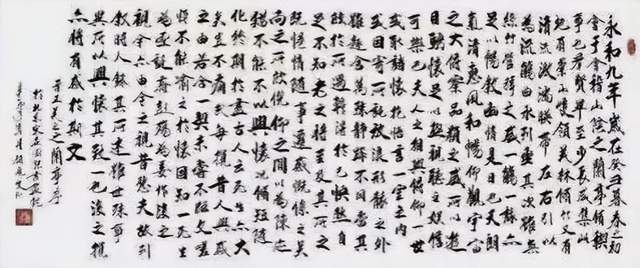 永和九年歲在癸丑暮春之初
會于會稽山陰之蘭亭脩禊
事也群賢畢至少長咸集此
地有崇山峻領茂林脩竹又有
清流激湍映帶左右引以
為流觴曲水列坐其次雖無
絲竹管弦之盛一觴一詠亦
足以暢敘幽情是日也天朗
氣清惠風和暢仰觀宇宙
之大俯察品類之盛所以遊
目騁懷足以極視聽之娛信
可樂也夫人之相與俯仰一世
或取諸懷抱悟言一室之內
或因寄所託放浪形骸之外
雖趣舍萬殊靜躁不同當其
欣於所遇暫得於己快然自
足不知老之將至及其所之
既倦情隨事遷感慨係之矣
向之所欣俛仰之間以為陳迹
猶不能不以之興懷況脩短隨
化終期於盡古人云死生亦大
矣豈不痛哉每攬昔人興感
之由若合一契未嘗不臨文嗟
悼不能喻之於懷固知一死生
為虛誕齊彭殤為妄作後之
視今亦由今之視昔悲夫故列
敘時人錄其所述雖世殊事
異所以興懷其致一也後之攬
亦將有感於斯文
晉王羲之蘭亭序